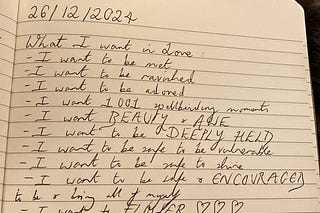 26/12/2024
What I want in Love:
- I want to be met
- I want to be ravished
- I want to be adored
- I want 1001 spellbinding moments
- I want BEAUTY & AWE
- I want to be DEEPLY HELD
- I want to be safe to be vulnerable
- I want to be safe to shine
- I want to be safe & ENCOURAGED
to be & bring all of myself
- I want to FLOWER ♡♡♡